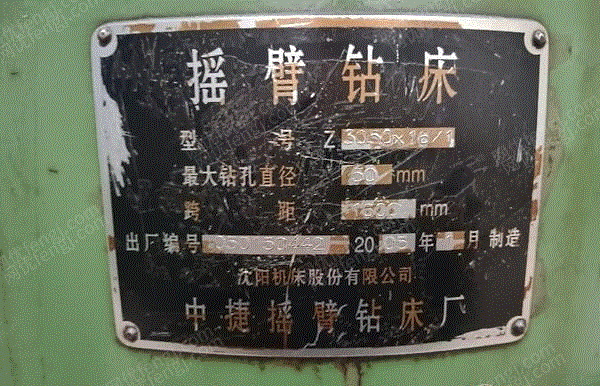 摇臂钻床
型号 Z 3050×16/1
最大钻孔直径 50 mm
跨距 1600 mm
出厂编号 2005 年 月 制造
沈阳机床股份有限公司
中捷摇臂钻床厂